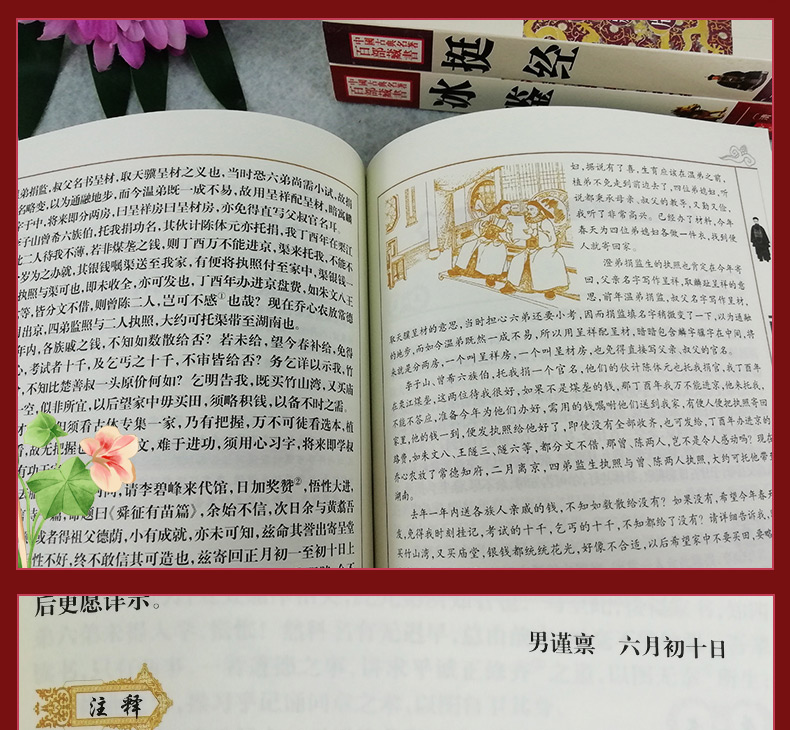 中國古典名著
百部藏書
挺 经
中國古典名著
百部藏書
冰 鉴
弟捐监，叔父名书呈材，取天骥呈材之义也，当时恐六弟尚需小试，故捐
名略变，以为通融地步，而今温弟既一成不易，故用呈祥配呈材，暗寓麟
字于中，将来即分两房，曰呈祥房曰呈材房，亦免得直写父叔官名耳。
李子山曾希六族伯，托我捐功名，其伙计陈体元亦托捐，我丁酉年在栗江
此二人待我不薄，若非煤垄之钱，则丁酉万不能进京，渠来托我，不能不
一岁为之办就，其银钱嘱渠送至我家，有便将执照付至家中，渠银钱一
执照与渠可也，即未收全，亦可发也，丁酉年办进京盘费，如朱文八王
等，皆分文不借，则曾陈二人，岂可不感①也哉？现在乔心农放常德
月出京，四弟监照与二人执照，大约可托渠带至湖南也。
年内，各族戚之钱，不知如数散给否？若未给，望今春补给，免得
心，考试者十千，及乞丐之十千，不审皆给否？务乞详以示我，竹
，不知比楚善叔一头原价何如？乞明告我，既买竹山湾，又买庙
一空，似非所宜，以后望家中毋买田，须略积钱，以备不时之需。
但须看古体专集一家，乃有把握，万不可徒看选本，植
看，故无把握也
文，难于进功，须用心习字，将来即学叔
有功
，请李碧峰来代馆，日加奖赞②，悟性大进，
题曰《舜征有苗篇》，余始不信，次日余与黄翥吾
或者得祖父德荫，小有成就，亦未可知，兹命其誉出寄呈堂
性不好，终不敢信其可造也，兹寄回正月初一至初十日上
妇，据说有了喜，生育应该在温弟之前，
植弟不免走到前边去了，四位弟媳妇，听
说都秉承母亲、叔父的教导，又勤又俭，
我听了非常高兴。已经办了材料，今年
春天为四位弟媳妇各做一件衣，找到便
人就寄回家。
澄弟捐监生的执照也肯定在今年寄
回，父亲名字写作呈祥，取麟趾呈祥的意
思，前年温弟捐监，叔父名字写作呈材，
取天骥呈材的意思，当时担心六弟还要小考，因而捐监填名字稍微变了一下，以为通融
的地步，而如今温弟既然一成不易，所以用呈祥配呈材，暗暗包含麟字骥字在中间，将
来就是分两房，一个叫呈祥房，一个叫呈材房，也免得直接写父亲、叔父的官名。
李子山、曾希六族伯，托我捐一个官名，他们的伙计陈体元也托我捐官，我丁酉年
在栗江煤垄，这两位待我很好，如果不是煤垄的钱，那丁酉年我万不能进京，他来托我，
不能不答应，准备今年为他们办好，需用的钱嘱咐他们送到我家，有便人便把执照寄回
家里，他的钱一到，便发执照给他好了，即使没有全部收齐，也可发给，丁酉年办进京的
路费，如朱文八、王隧三、隧六等，都分文不借，那曾、陈两人，岂不是令人感动吗？现在
乔心农放了常德知府，二月离京，四弟监生执照与曾、陈两人执照，大约可托他带
湖南。
去年一年内送各族人亲戚的钱，不知如数散给没有？如果没有，希望今年春天
发，免得我时刻挂记，考试的十千，乞丐的十千，不知都给了没有？请详细告诉我，
买竹山湾，又买庙堂，银钱都统统花光，好像不合适，以后希望家中不要买田，要略
后更愿详示。
男谨禀 六月初十日
注释